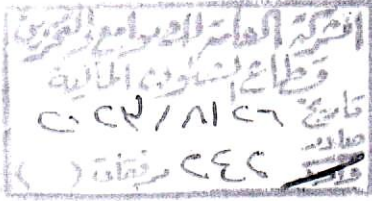 الشركة العامة للصوامع والتخزين
قطاع الشئون المالية
تاريخ ٢٦ / ٨ / ٢٠٢٣
صادر
وارد ٢٤٢ مرفقات (    )